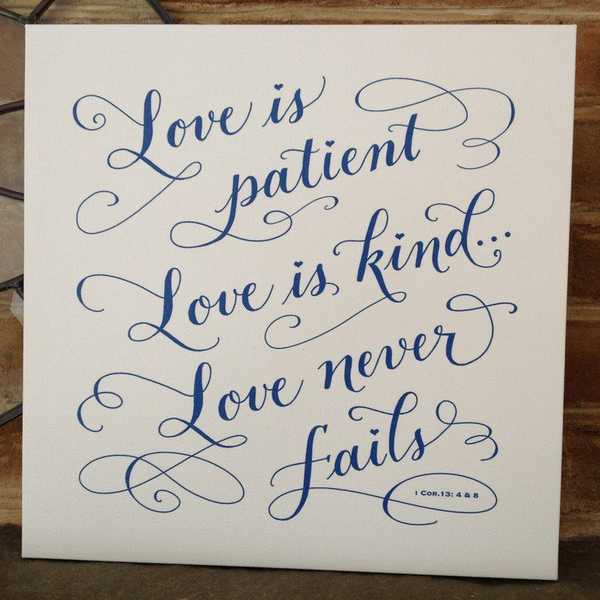 Love is
patient
Love is kind...
Love never
fails
1 Cor.13: 4 & 8